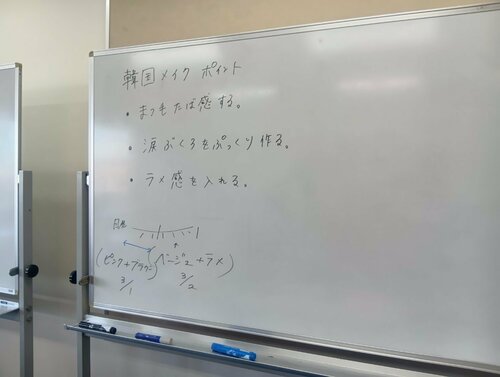 韓国メイク ポイント
・まつもたば感する。
・涙ぶくろをぷっくり作る。
・ラメ感を入れる。
(ピンク+ブラウン)(ベージュ+ラメ)
3/1 3/2